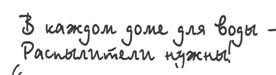 В каждом доме для воды -
Распылители нужны!